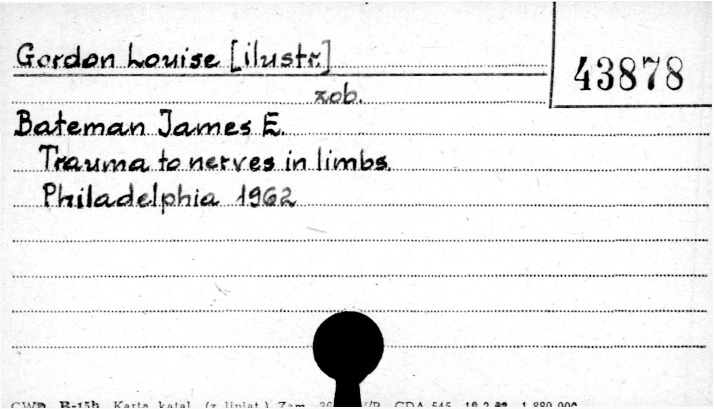 Gordon Louise [ilustr.]
43878
zob.
Bateman James E.
Trauma to nerves in limbs.
Philadelphia 1962
CWD B-15h Karta katal. (z liniat.) Zam. GDA 545